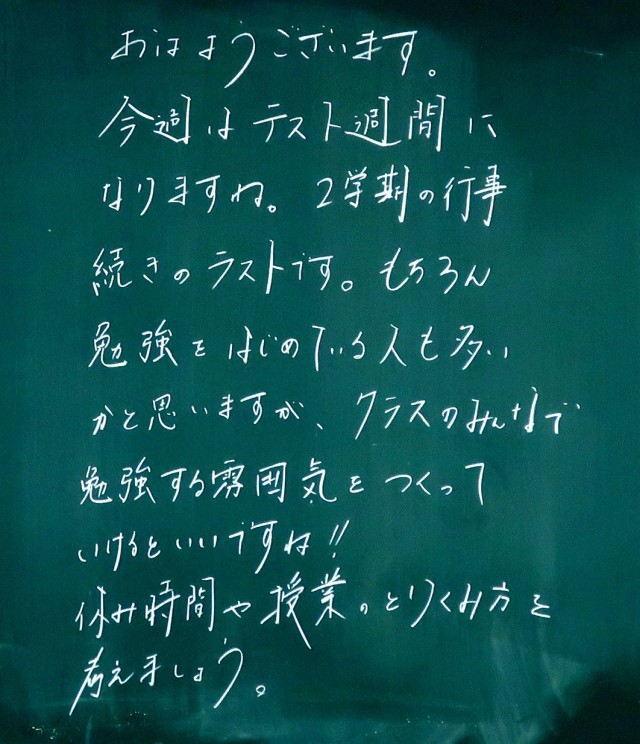 おはようございます。
今週はテスト週間に
なりますね。2学期の行事
続きのラストです。もちろん
勉強をはじめている人も多い
かと思いますが、クラスのみんなで
勉強する雰囲気をつくって
いけるといいですね!!
休み時間や授業のとりくみ方を
考えましょう。